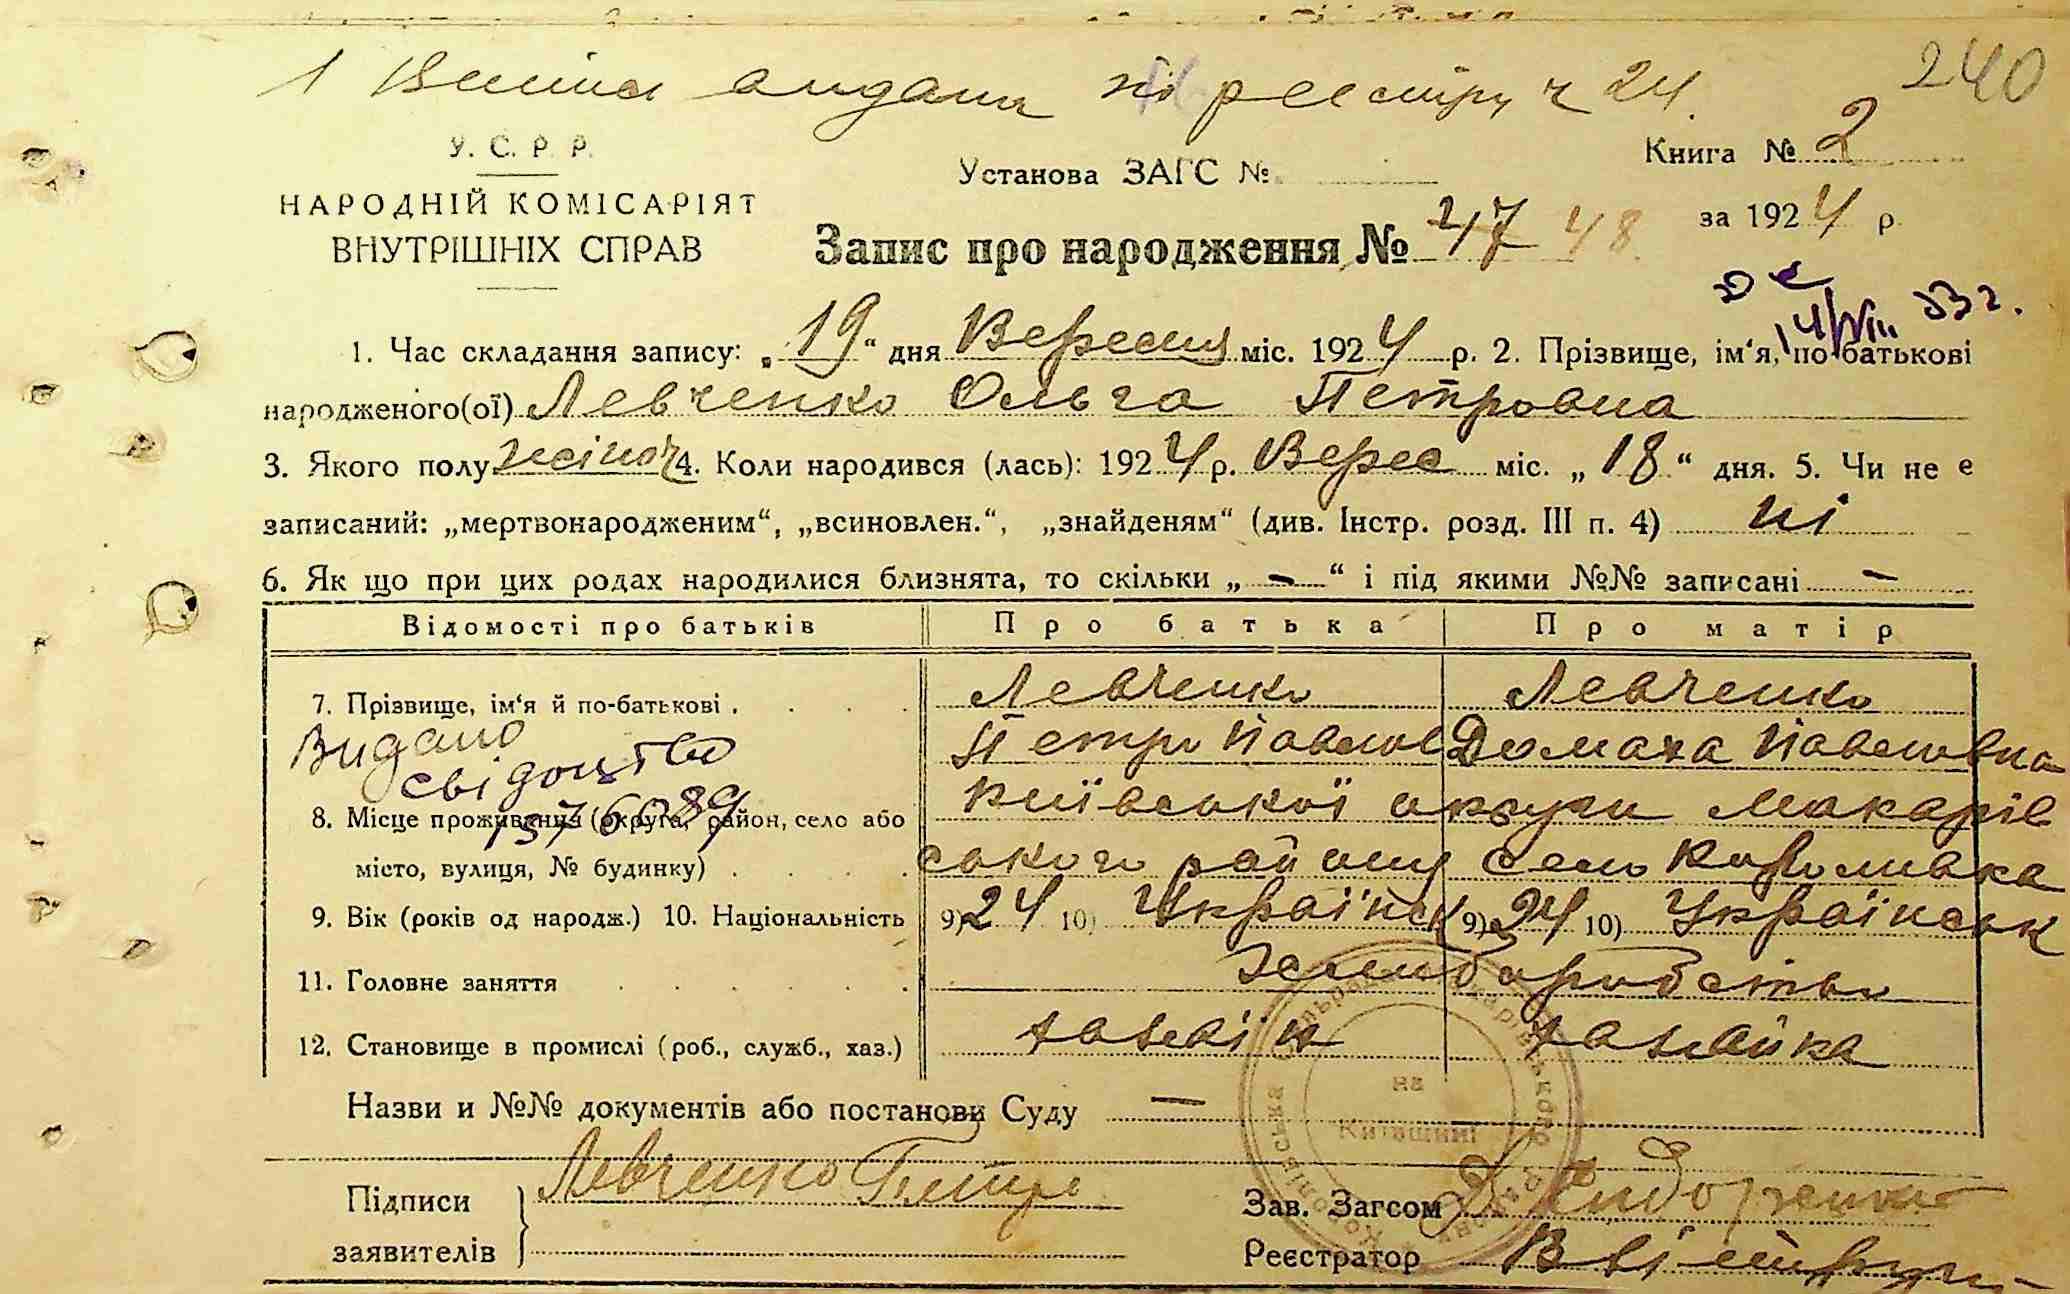 1 Виписа видана по реєстру ч 24.
240
У. С. Р. Р.
НАРОДНІЙ КОМІСАРІЯТ
ВНУТРІШНІХ СПРАВ
Установа ЗАГС №
Книга № 2
за 1924 р.
Запис про народження № 47 48
14/VIII 53 г.
1. Час складання запису: „19“ дня Вересня міс. 1924 р. 2. Прізвище, ім‘я, по батькові
народженого(ої) Левченко Ольга Петровна
3. Якого полу жіноч 4. Коли народився (лась): 1924 р. Верес міс. „18“ дня. 5. Чи не є
записаний: „мертвонародженим“, „всиновлен.“, „знайденям“ (див. Інстр. розд. III п. 4) ні
6. Як що при цих родах народилися близнята, то скільки „—“ і під якими №№ записані —
Відомості про батьків Про батька Про матір
7. Прізвище, ім‘я й по-батькові . Левченко Левченко
Петро Павлов Домаха Павловна
Видано
свідоцтво
8. Місце проживання (округа, район, село або Київської округи Макарів
місто, вулиця, № будинку) ського району село Королівка
9. Вік (років од народж.) 10. Національність 9) 24 10) Українск 9) 24 10) Українськ
11. Головне заняття Хліборобство
12. Становище в промислі (роб., служб., хаз.) хазяїн хазяйка
на
Київщині
Назви и №№ документів або постанови Суду —
Підписи Левченко Петро
заявителів
Зав. Загсом Сидоренко
Реєстратор